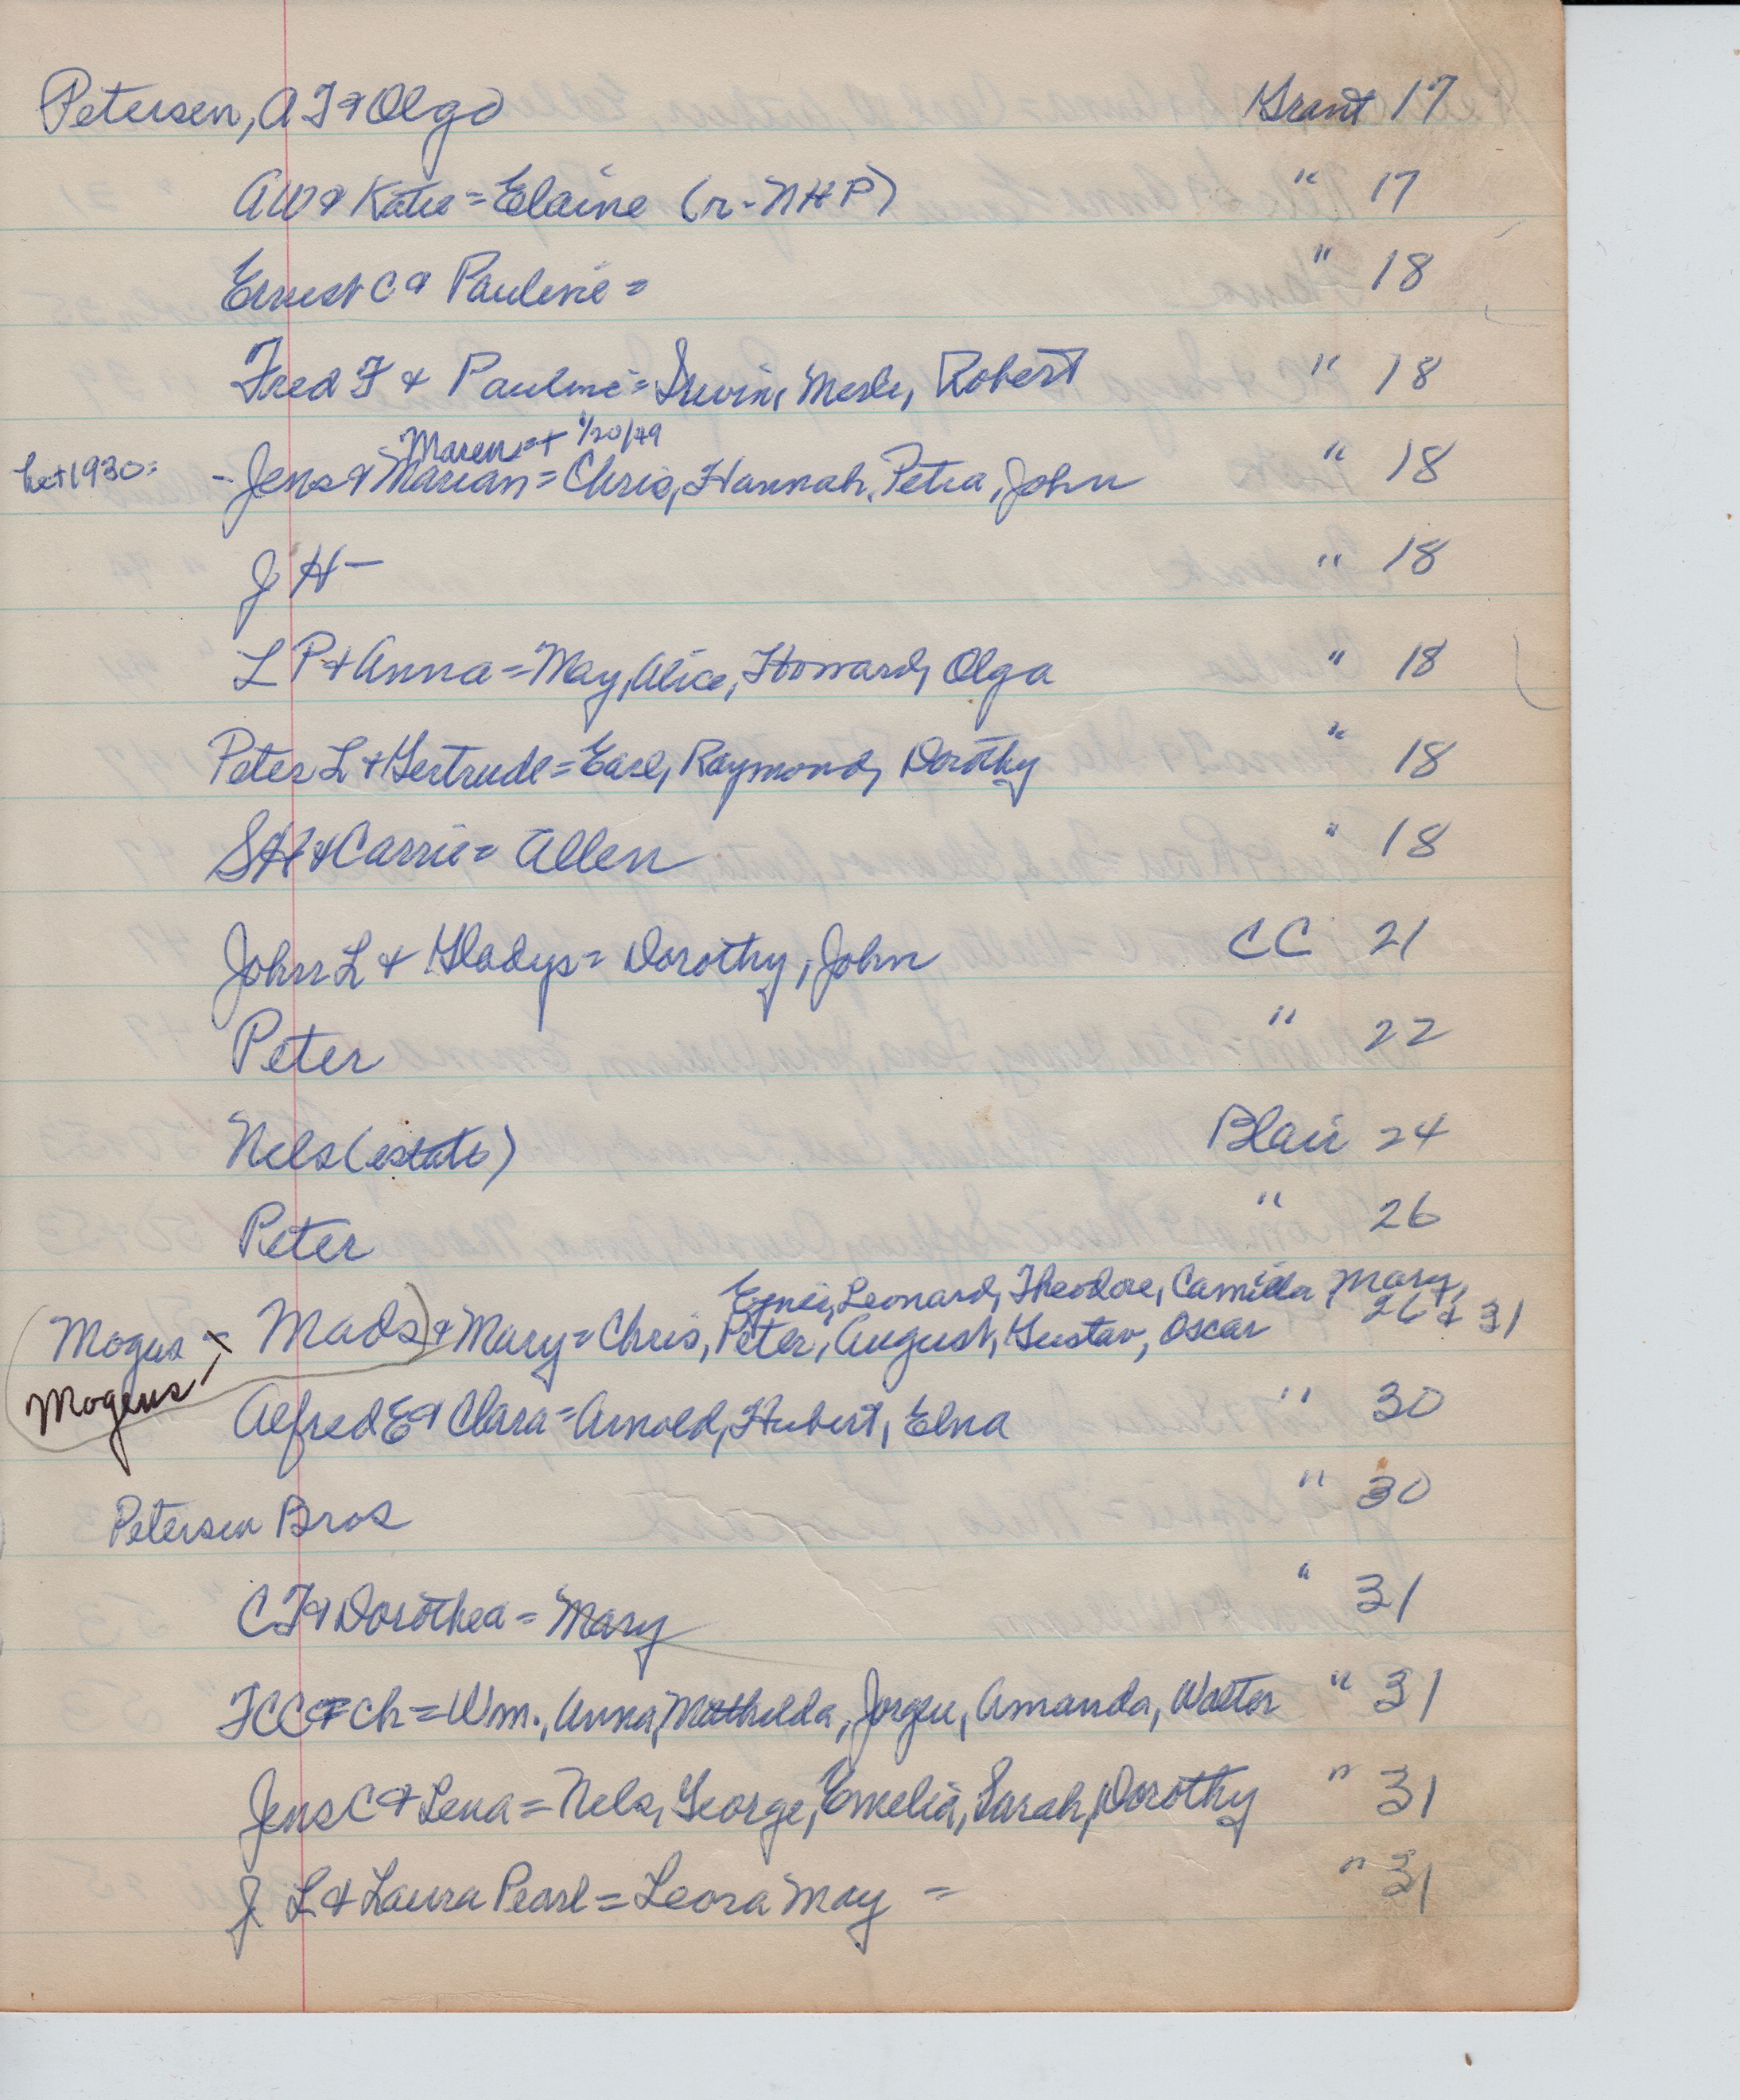 Petersen, A F & Olga Grant 17
AW & Katie = Elaine (r-NHP) " 17
Ernest C & Pauline = " 18
Fred F & Pauline = Irwin, Merle, Robert " 18
Maren = + 1/20/49
bet 1930: - Jens & Marian = Chris, Hannah, Petra, John " 18
J H - " 18
L P + Anna = May, Alice, Howard, Olga " 18
Peter L + Gertrude = Earl, Raymond, Dorothy " 18
SH & Carrie = Allen " 18
John L & Gladys = Dorothy, John CC 21
Peter " 22
Nels (estate) Blair 24
Peter " 26
Leonard, Theodore, Camilla, Mary,
Mogus = Mads) & Mary = Chris, Peter, August, Gustav, Oscar 26 & 31
Mogens
Alfred E & Clara = Arnold, Hubert, Elna " 30
Petersen Bros " 30
C F & Dorothea = Mary " 31
ch = Wm., Anna, Mathilda, Jorgen, Amanda, Walter " 31
Jens C & Lena = Nels, George, Emelia, Sarah, Dorothy " 31
J L & Laura Pearl = Leora May = " 31